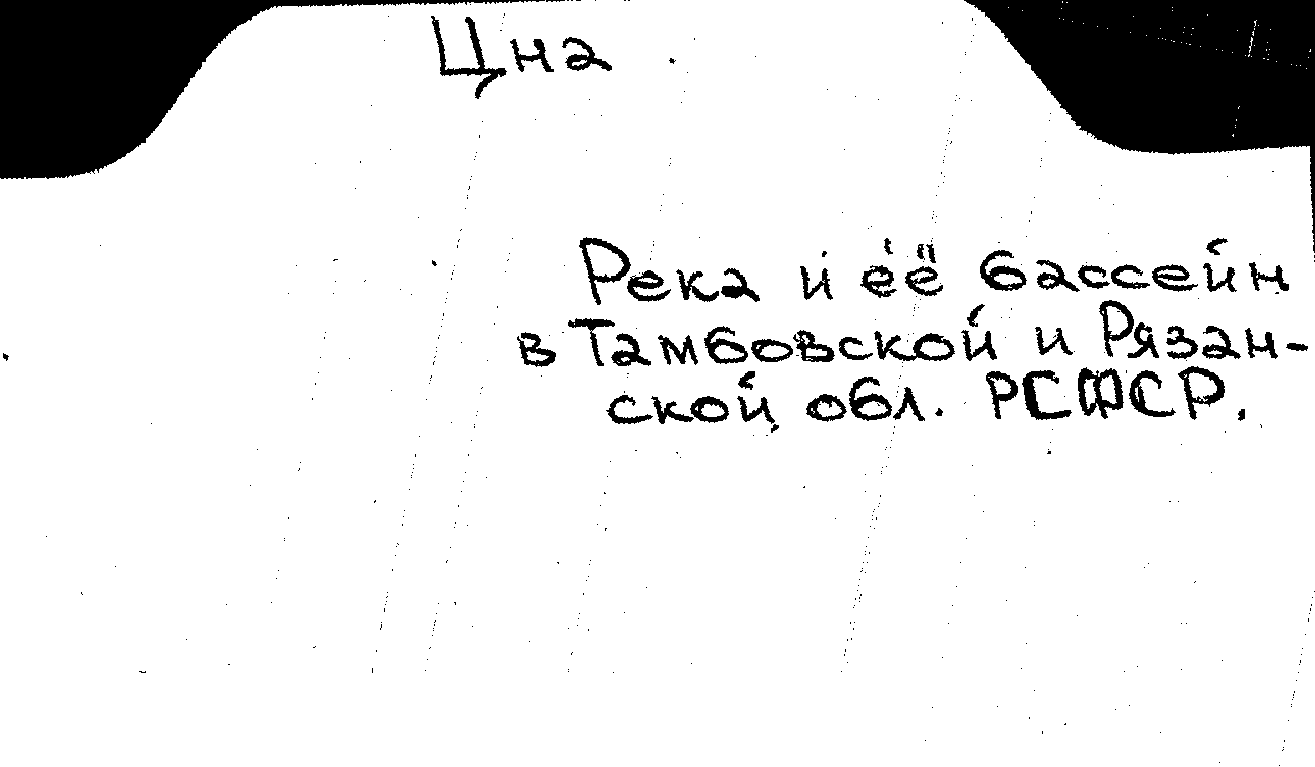 Цна
Река и её бассейн
в Тамбовской и Рязан-
ской обл. РСФСР.